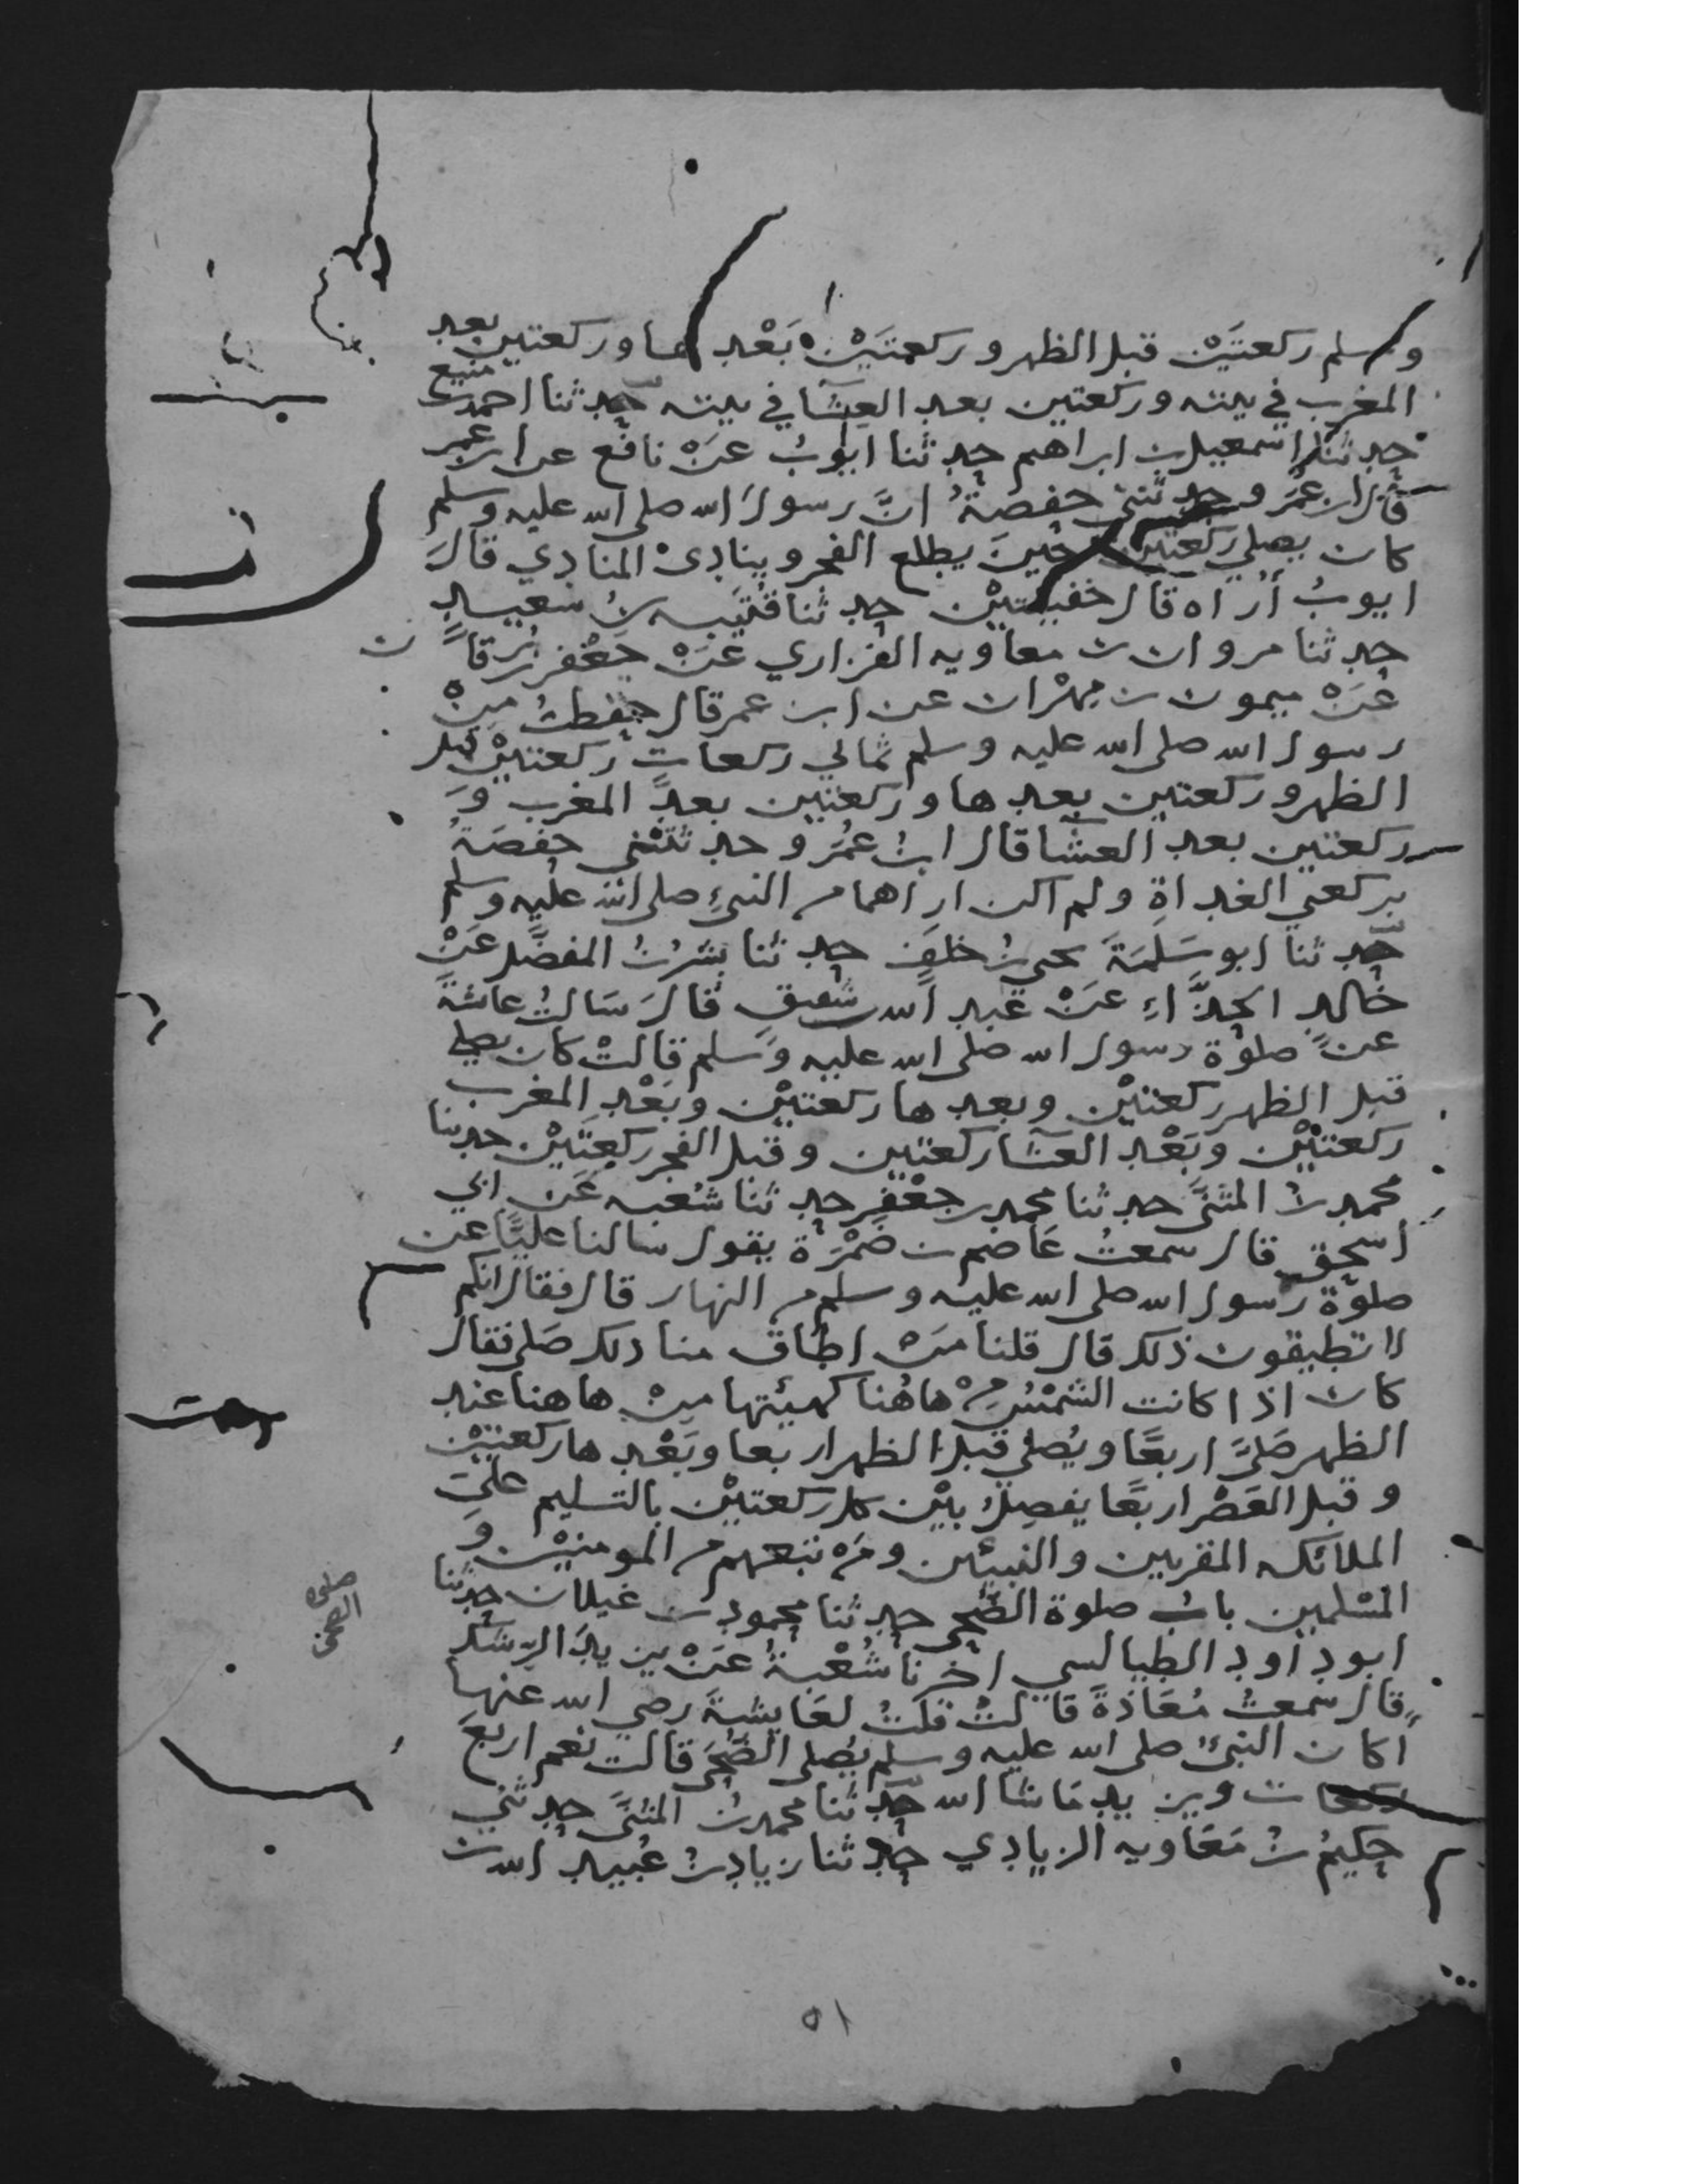 وسلم ركعتَيْن قبل الظهر وركعتَيْن بَعْدها وركعتين بعد
المغرب في بيته وركعتين بعد العِشَا في بيته حدثنا احمد بن منيع
حدثنا اسمعيل بن ابراهيم حدثنا ايوبُ عَنْ نافع عن ابن عمر
قال ابن عمَر وحدثتني حفصةُ انَّ رسولَ الله صلى الله عليه وسلم
كان يصلي ركعتين حينَ يطلع الفجر وينادىْ المنادي قالَ
ايوبُ أُراه قال خفيفتيْن حدثنا قُتَيبه بنُ سَعيد
حدثنا مروان بن معاويه الفزاري عَنْ جَعْفر بن بُرقان
عَنْ ميمون بن مِهْران عن ابن عمر قال حفظتُ مِنْ
رسول الله صلى الله عليه وسلم ثماني ركعاتٍ ركعتيْن قبل
الظهر وركعتين بعدها وركعتين بعدَ المغرب وَ
ركعتين بعد العشَا قال ابنُ عمُر وحدثتْني حفصَةُ
بركعتي الغداةِ ولم اكن اراهما من النبيِّ صلى الله عليه وسلم
حدثنا ابو سَلَمَةَ يحيى بنُ خلفٍ حدثنا بشرُ بنُ المفضَّل عَنْ
خالد الحذَّاءِ عَنْ عَبد الله بن شقيقٍ قالَ سَالتُ عائشةَ
عنْ صلوة رسول الله صلى الله عليه وَسلم قالتْ كان يصلي
قبل الظهر ركعتيْن وبعدها ركعتيْن وبَعْد المغرب
ركعتيْن وَبَعْد العشَا ركعتين وقبل الفجر ركعتَيْن حدثنا
محمد بنُ المثنَّى حدثنا محمد بن جعْفرٍ حدثنا شُعْبه عَن ابي
اسحق قال سمعتُ عَاصم بن ضَمْرَة يقول سالنا عليًّا عن
صلوة رسول الله صلى الله عليه وسلم من النهار قال فقال انكم
لا تطيقون ذلك قال قلنا مَنْ اطاق منا ذلك صَلى فقال
كان اذا كانت الشمْسُ مِنْ هاهُنا كهيئتها مِنْ هاهنا عند
الظهر صَلىَّ اربعًا ويُصلي قبل الظهر اربعا وبَعْدها ركعتيْن
وقبل العَصْر اربعًا يفصِلُ بيْن كل ركعتيْن بالتسليم على
الملائكه المقربين والنبيّين ومَن تبعهم من المومنيْن وَ
المسْلمين بابُ صلوة الضُّحى حدثنا محمود بن غيلان حدثنا
ابو داود الطيالسي اخبرنا شُعْبةُ عَنْ يزيدَ الرِّشك
قال سمعتُ مُعَاذةَ قالتْ قلتُ لعَايشةَ رضي الله عنها
أكان النبيُّ صلى الله عليه وسلم يُصلي الضُحَى قالت نعم اربعَ
ركعات ويزيد مَا شا الله حدثنا محمد بنُ المثنَّى حدثني
حكيمُ بنُ مَعَاويه الزيادي حدثنا زياد بنُ عُبَيد الله بن
صلوه
الضحى
٥١